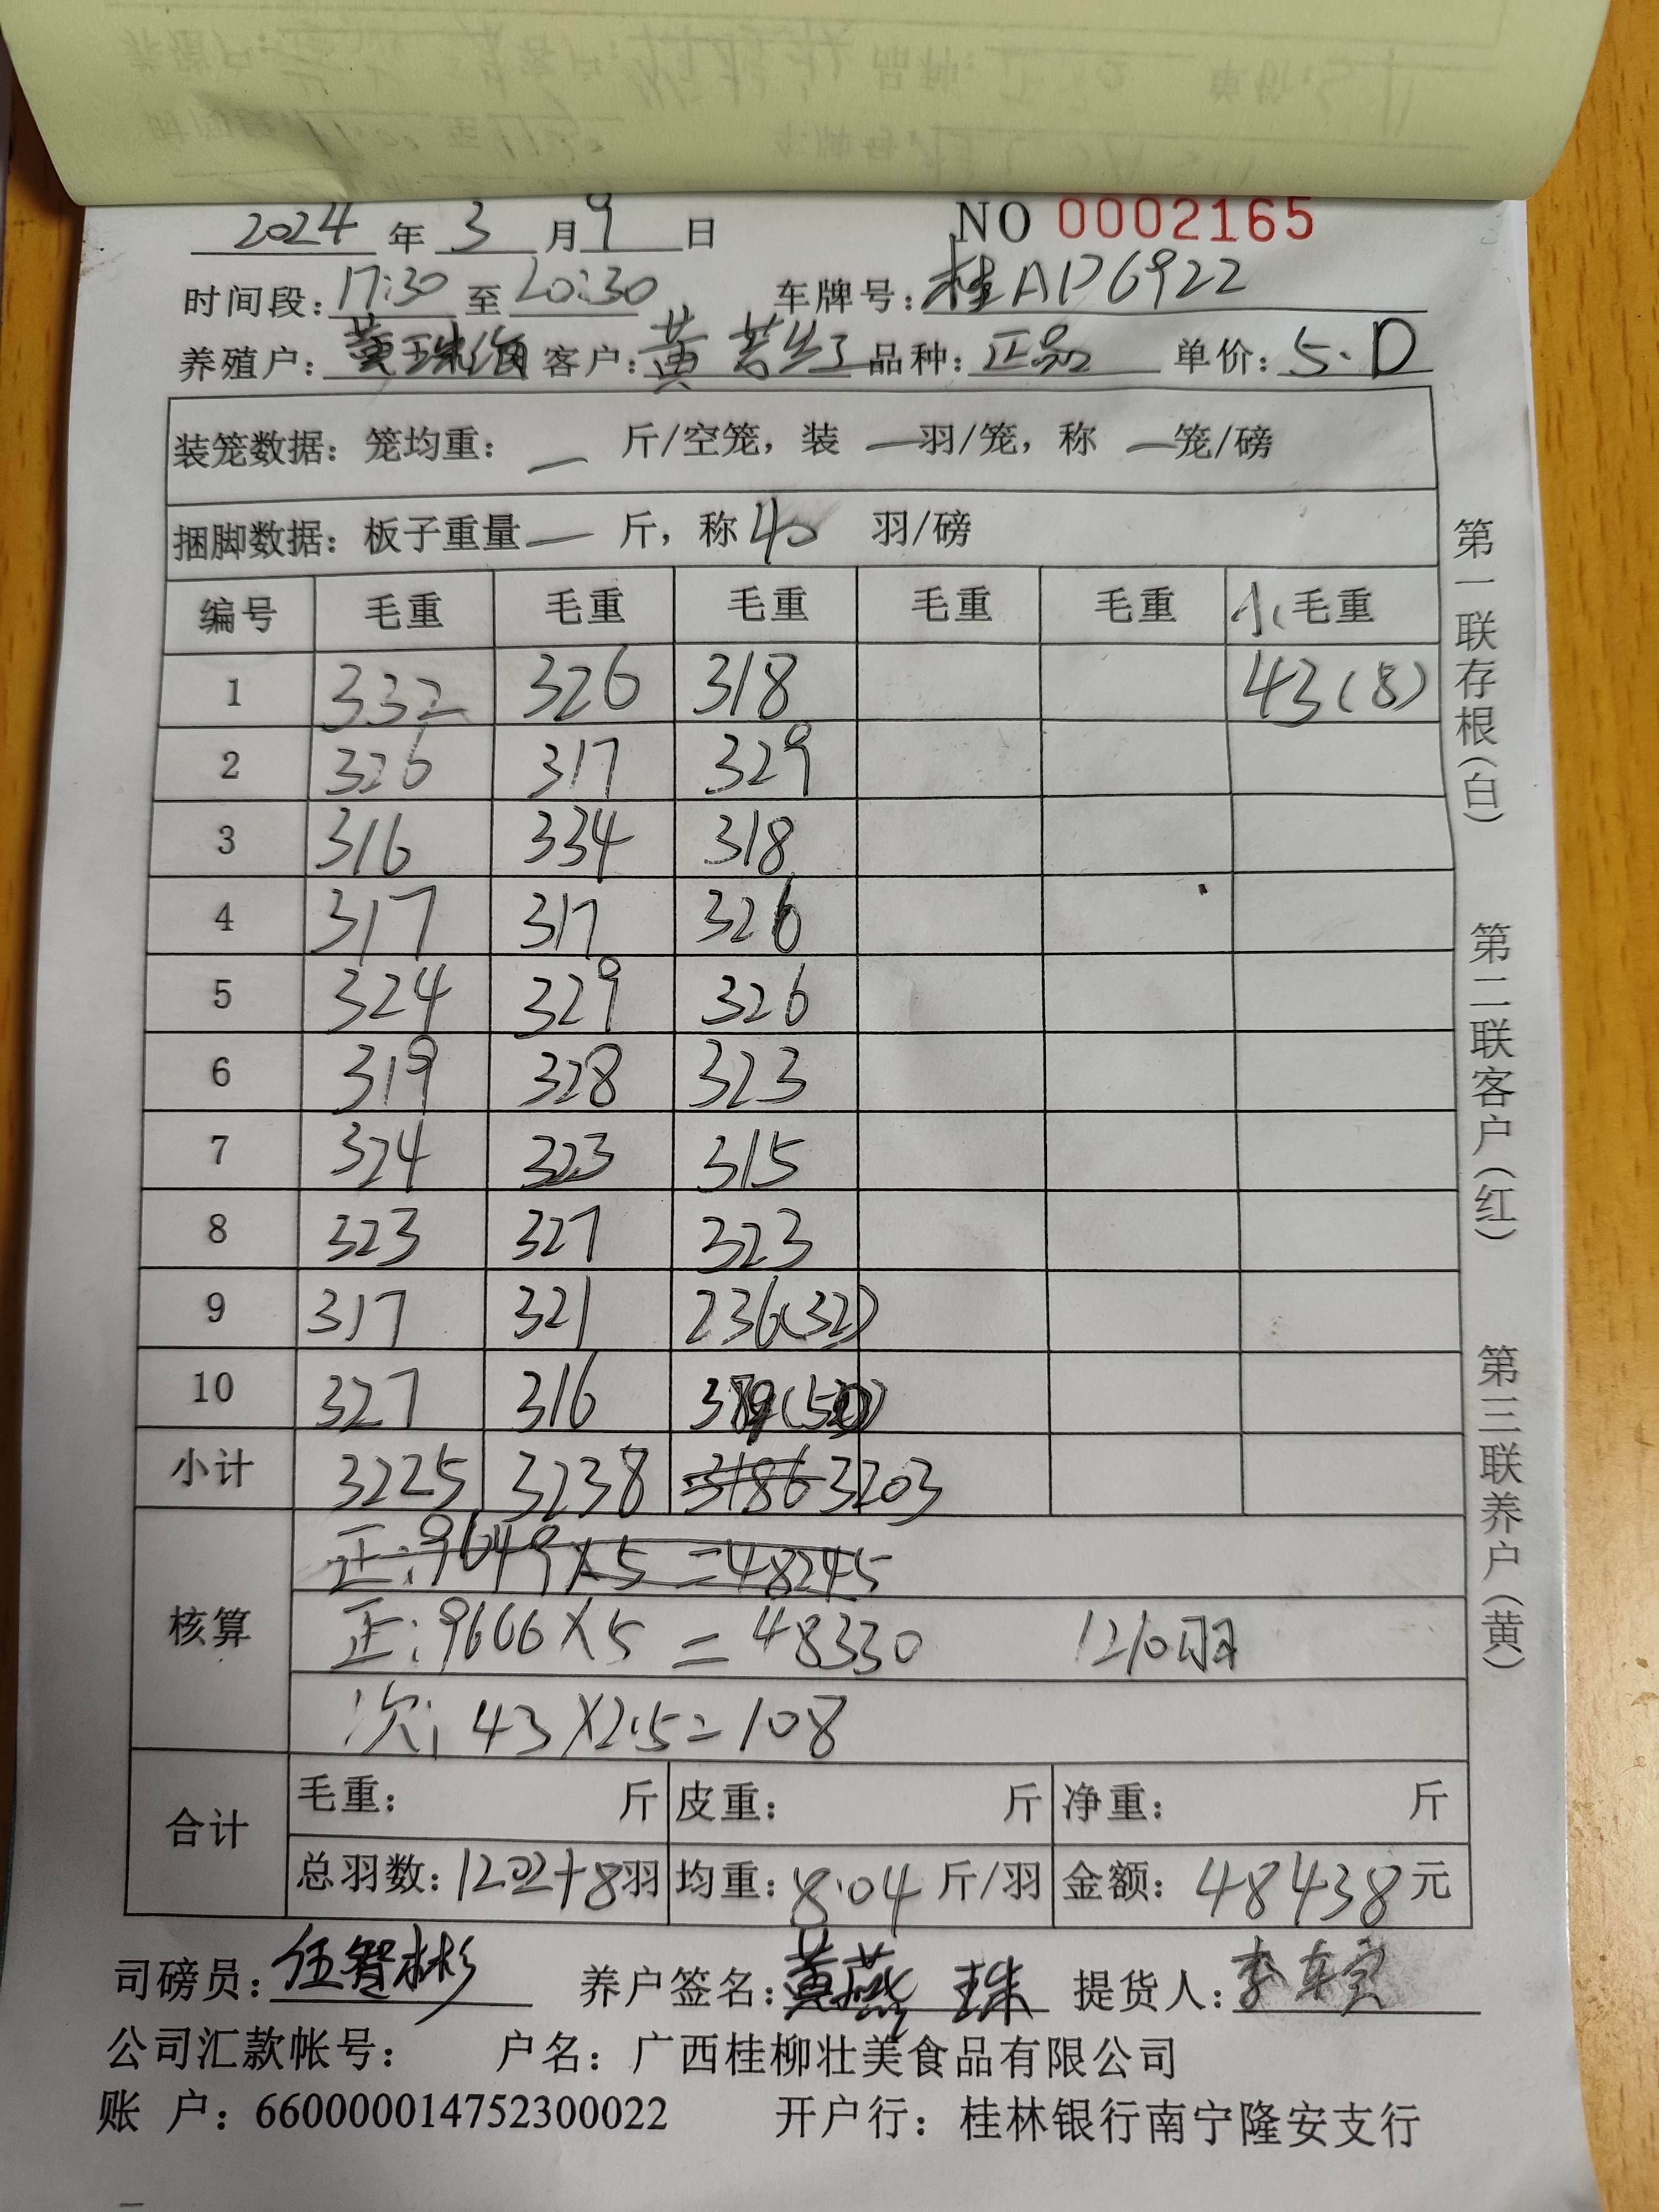 2024年3月9日 NO 0002165
时间段:17:30至20:30 车牌号:桂AD6922
养殖户:黄珠 客户:黄 品种:正品 单价:5.0
装笼数据:笼均重: — 斤/空笼,装 — 羽/笼,称 — 笼/磅
捆脚数据:板子重量 — 斤,称 40 羽/磅
编号 毛重 毛重 毛重 毛重 毛重 毛重
1 332 326 318 43(8)
2 326 317 329
3 316 334 318
4 317 317 326
5 324 329 326
6 319 328 323
7 324 323 315
8 323 327 323
9 317 321 236(32)
10 327 316
小计 3225 3238 3186 3203
正:9649×5=48245
核算 正:9666×5=48330 1210羽
次:43×2.5=108
合计 毛重: 斤 皮重: 斤 净重: 斤
总羽数:1202+8羽 均重:8.04斤/羽 金额:48438元
司磅员:伍智彬 养户签名:黄燕珠 提货人:李
公司汇款帐号: 户名:广西桂柳壮美食品有限公司
账 户:660000014752300022 开户行:桂林银行南宁隆安支行
第一联存根(白) 第二联客户(红) 第三联养户(黄)